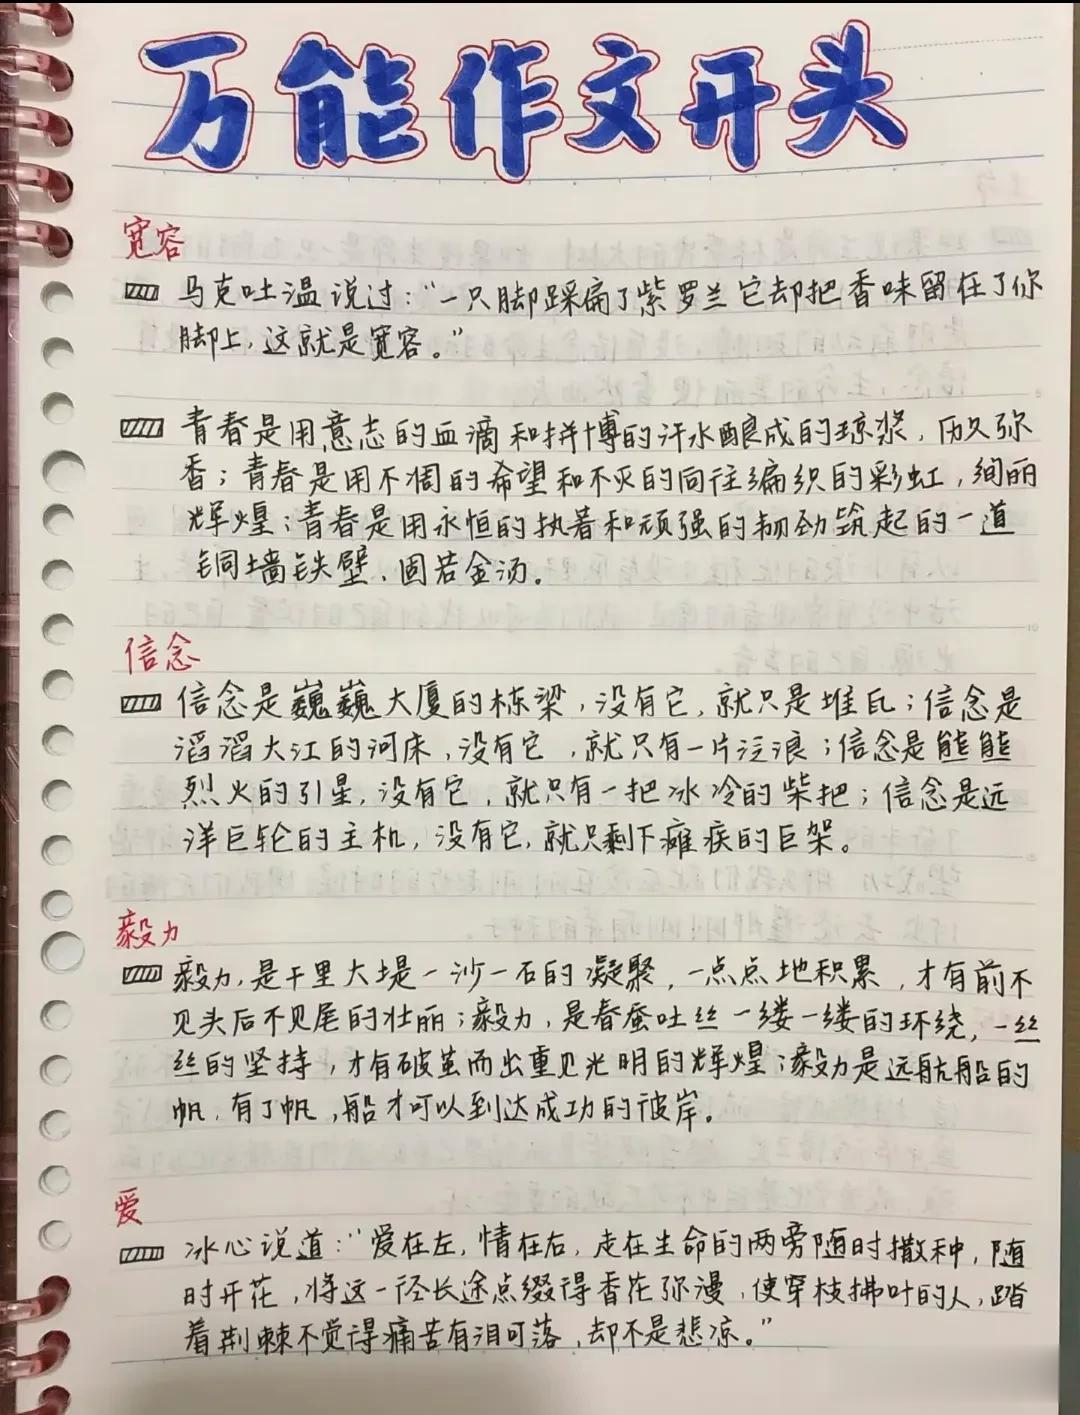 万能作文开头
宽容
马克吐温说过：“一只脚踩扁了紫罗兰它却把香味留在了你
脚上，这就是宽容。”
青春是用意志的血滴和拼博的汗水酿成的琼浆，历久弥
香；青春是用不凋的希望和不灭的向往编织的彩虹，绚丽
辉煌；青春是用永恒的执著和顽强的韧劲筑起的一道
铜墙铁壁、固若金汤。
信念
信念是巍巍大厦的栋梁，没有它，就只是堆瓦；信念是
滔滔大江的河床，没有它，就只有一片泛浪；信念是熊熊
烈火的引星，没有它，就只有一把冰冷的柴把；信念是远
洋巨轮的主机，没有它，就只剩下瘫痪的巨架。
毅力
毅力，是千里大堤一沙一石的凝聚，一点点地积累，才有前不
见头后不见尾的壮丽；毅力，是春蚕吐丝一缕一缕的环绕，一丝
丝的坚持，才有破茧而出重见光明的辉煌；毅力是远航船的
帆，有了帆，船才可以到达成功的彼岸。
爱
冰心说道：“爱在左，情在右，走在生命的两旁随时撒种，随
时开花，将这一径长途点缀得香花弥漫，使穿枝拂叶的人，踏
着荆棘不觉得痛苦有泪可落，却不是悲凉。”